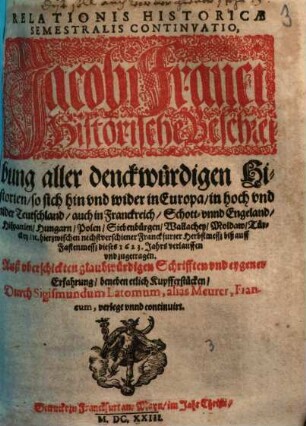 3
RELATIONIS HISTORICÆ
SEMESTRALIS CONTINVATIO,
Jacobi Franci
Historische Beschrei
bung aller denckwürdigen Hi-
storien/ so sich hin vnd wider in Europa/ in hoch vnd
nider Teutschland/ auch in Franckreich/ Schott- vnnd Engeland/
Hispanien/ Hungarn/ Polen/ Siebenbürgen/ Wallachey/ Moldaw/ Tür-
ckey/ ꝛc. hierzwischen nechstverschiener Franckfurter Herbstmeß/ biß auff
Fastenmeß/ dieses 1623. Jahrs verlauffen
vnd zugetragen.
Auß vberschickten glaubwürdigen Schrifften vnd eygener
Erfahrung/ beneben etlich Kupfferstücken/
Durch Sigismundum Latomum, alias Meurer, Fran-
cum, verlegt vnnd continuirt.
3
Getruckt zu Franckfurt am Mayn/ im Jahr Christi/
M. DC. XXIII.